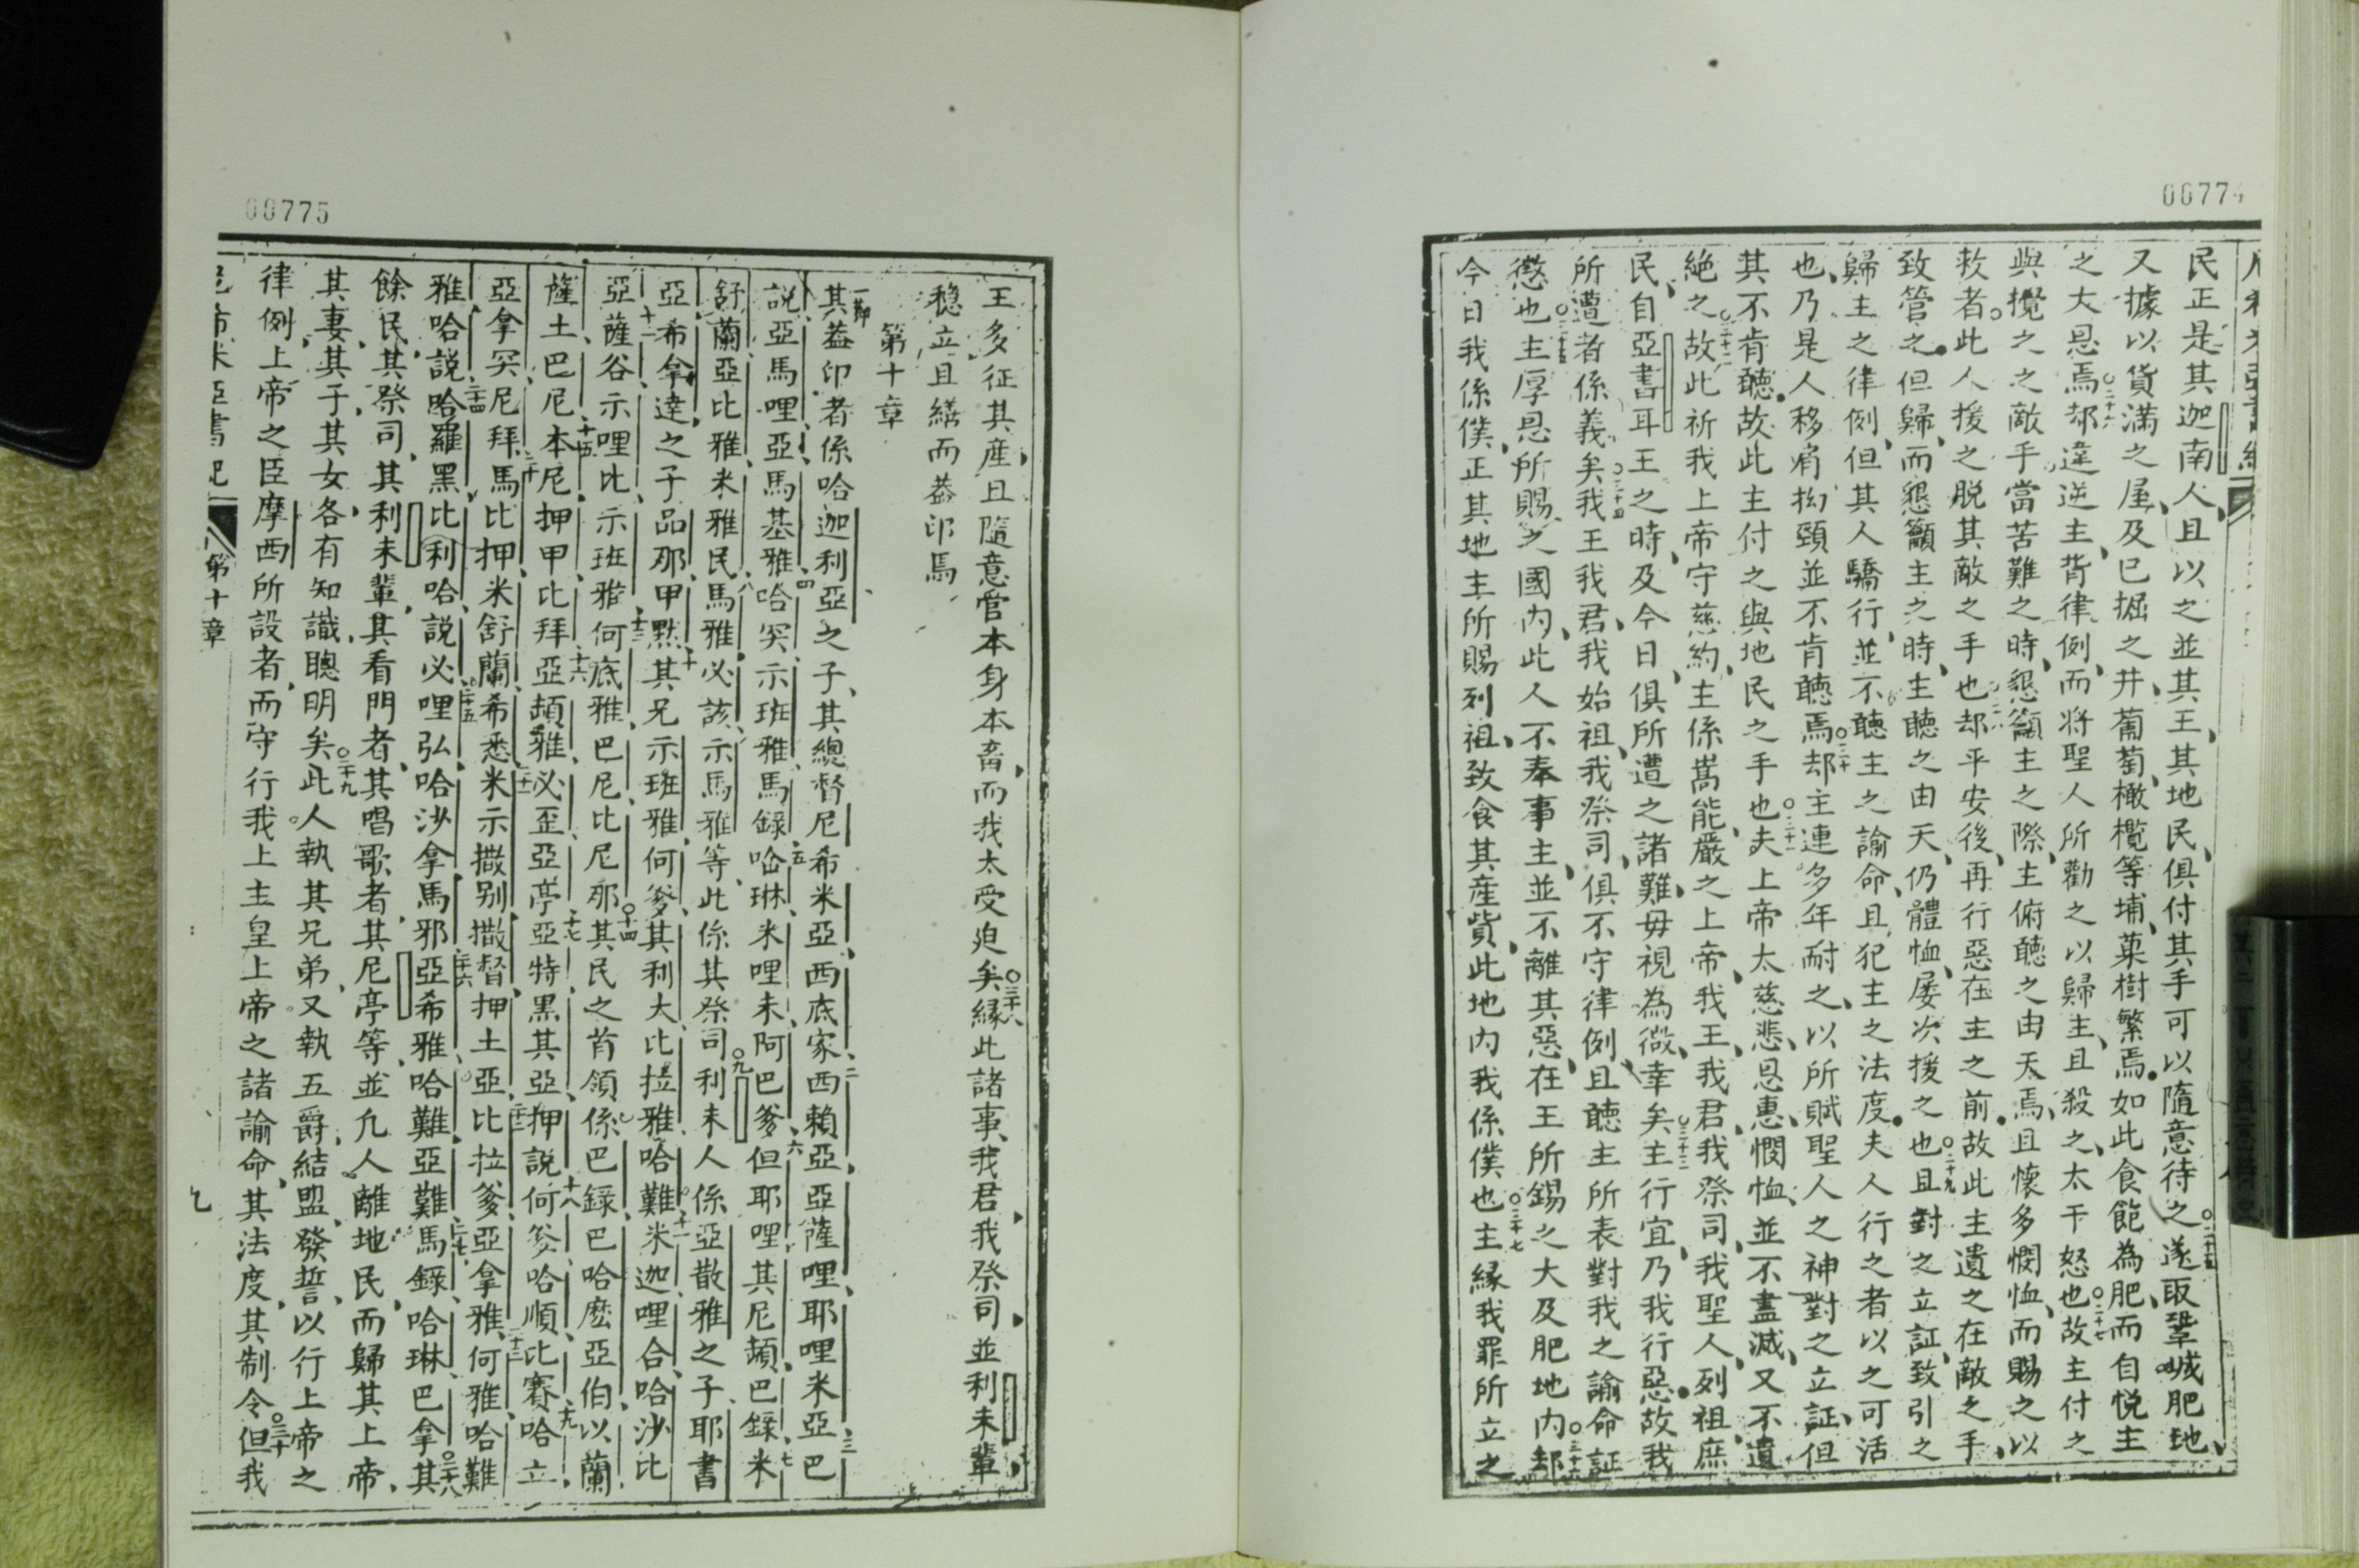 00774
民正是其迦南人且以之並其王其地民俱付其手可以隨意待之○二十五遂取鞏城肥地
又據以貨滿之屋及已掘之井葡萄橄欖等埔菓樹繁焉如此食飽為肥而自悅主
之大恩焉○二十六却違逆主背律例而將聖人所勸之以歸主且殺之太干怒也○二十七故主付之
與攪之之敵手當苦難之時懇籲主之際主俯聽之由天焉且懷多憫恤而賜之以
救者此人援之脫其敵之手也却平安後再行惡在主之前故此主遺之在敵之手
致管之但歸而懇籲主之時主聽之由天仍體恤屢次援之也○二十九且對之立証致引之
歸主之律例但其人驕行並不聽主之諭命且犯主之法度夫人行之者以之可活
也乃是人移肩拗頸並不肯聽焉○三十却主連多年耐之以所賦聖人之神對之立証但
其不肯聽故此主付之與地民之手也○三十一夫上帝太慈悲恩惠憫恤並不盡滅又不遺
絕之○三十二故此祈我上帝守慈約主係嵩能嚴之上帝我王我君我祭司我聖人列祖庶
民自亞書耳王之時及今日俱所遭之諸難毋視為微○三十三幸矣主行宜乃我行惡故我
所遭者係義矣○三十四我王我君我始祖我祭司俱不守律例且聽主所表對我之諭命証
懲也○三十五主厚恩所賜之國內此人不奉事主並不離其惡在王所錫之大及肥地內○三十六却
今日我係僕正其地主所賜列祖致食其產貨此地內我係僕也○三十七主緣我罪所立之
00775
王多征其產且隨意管本身本畜而我太受迫矣○三十八緣此諸事我君我祭司並利未輩
穩立且繕而葢印焉
第十章
一節其葢印者係哈迦利亞之子其總督尼希米亞西底家二西賴亞亞薩哩耶哩米亞三巴
說亞馬哩亞馬基雅四哈突示班雅馬錄五哈琳米哩未阿巴爹六但耶哩其尼頓巴錄七米
舒蘭亞比雅米雅民八馬雅必該示馬雅等此係其祭司○九利未人係亞散雅之子耶書
亞希拿達之子品那甲默十其兄示班雅何爹其利大比拉雅哈難十一米迦哩合哈沙比
亞薩谷示哩比示班雅十三何底雅巴尼比尼那○十四其民之首領係巴錄巴哈麽亞伯以蘭
薩土巴尼十五本尼押甲比拜十六亞頓雅必歪亞亭十七亞特黑其亞押十八說何爹哈順比賽十九哈立
亞拿突尼拜二十馬比押米舒蘭希悉二十一米示撒别撒督押土亞二十二比拉爹亞拿雅二十三何雅哈難
雅哈說二十四哈羅黑比利哈說必二十五哩弘哈沙拿馬邪二十六亞希雅哈難亞難二十七馬錄哈琳巴拿○二十八其
餘民其祭司其利未輩其看門者其唱歌者其尼亭等並凢人離地民而歸其上帝
其妻其子其女各有知識聰明矣○二十九此人執其兄弟又執五爵結盟發誓以行上帝之
律例上帝之臣摩西所設者而守行我上主皇上帝之諸諭命其法度其制令○三十但我
尼希米亞書記 第十章 九